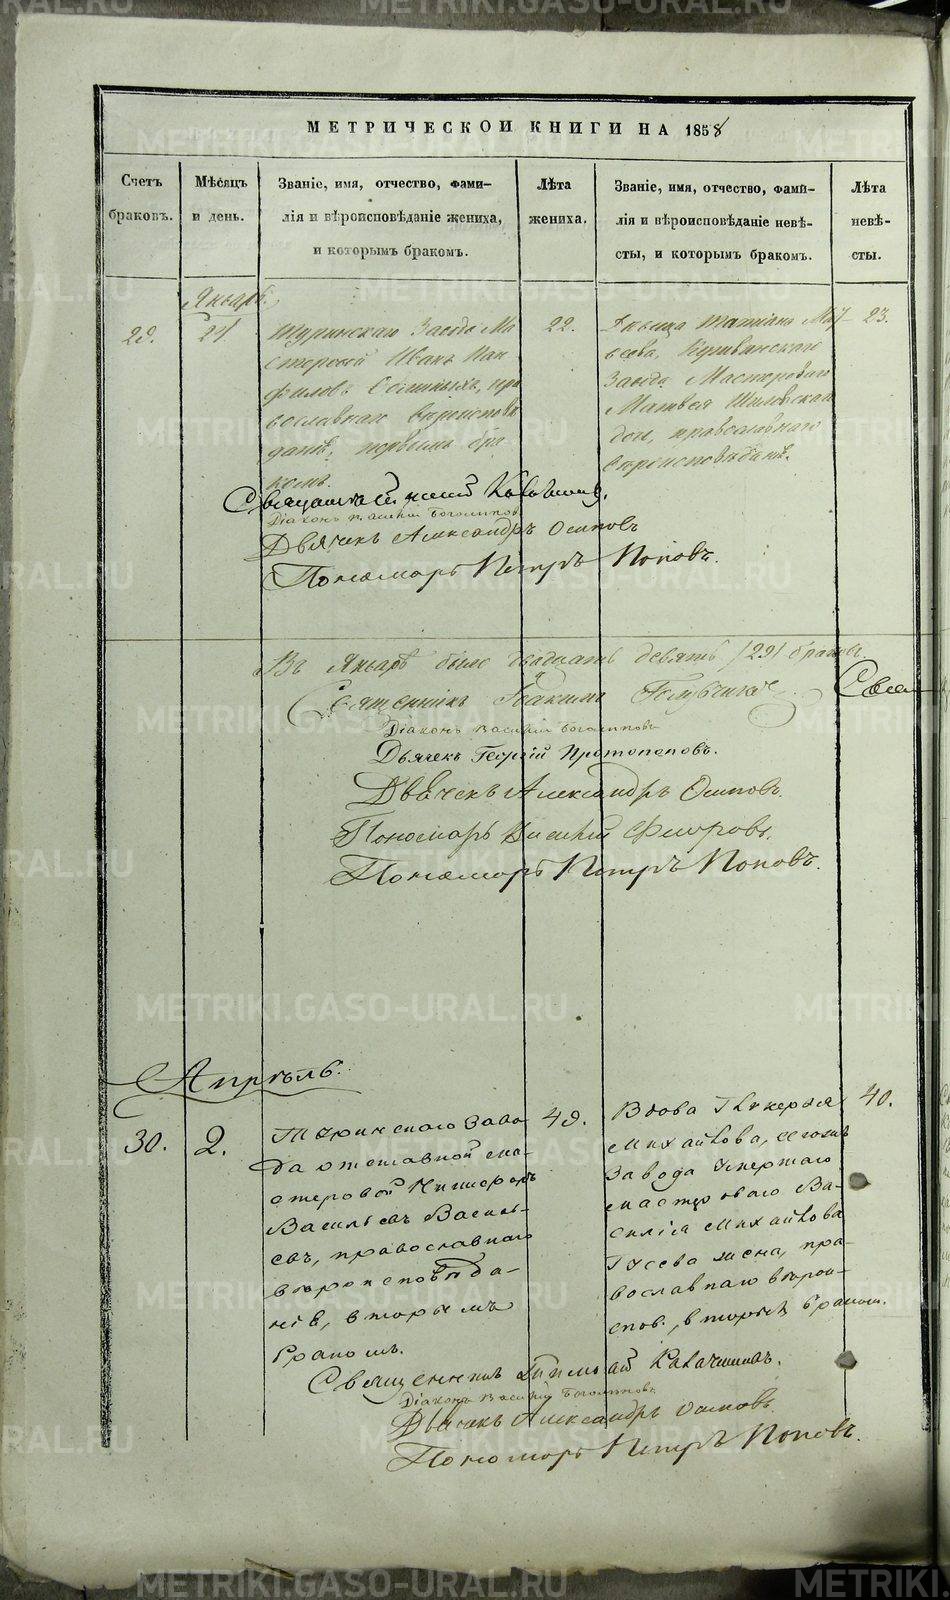 МЕТРИЧЕСКОЙ КНИГИ НА 1858
Счетъ браковъ.
Мѣсяцъ и день.
Званіе, имя, отчество, фами-
лія и вѣроисповѣданіе жениха,
и которымъ бракомъ.
Лѣта жениха.
Званіе, имя, отчество, фами-
лія и вѣроисповѣданіе невѣ-
сты, и которымъ бракомъ.
Лѣта невѣ-
сты.
Январь.
29.
21
Туринскаго Завода Ма
стеровый Иванъ Пан
филовъ православнаго вѣроиспов
даніе, первымъ бра
комъ.
22.
Дѣвица Татіана Мат-
веева, Кушвинскаго
Завода Мастероваго
Матвея
дочь, православнаго
вѣроисповѣданіе.
23.
Священникъ
Діаконъ Василій Боголиповъ
Дьячекъ Александръ Осиповъ
Пономарь Петръ Поповъ.
Въ Январѣ было двадцать девять /29/ браковъ.
Священникъ Іоакимъ
Діаконъ Василій Боголиповъ
Дьячекъ Георгій Протопоповъ.
Дьячекъ Александръ Осиповъ.
Пономарь Василій Флоровъ.
Пономарь Петръ Поповъ.
Апрѣль.
30.
2.
Туринскаго Заво
да отставной ма-
стеровой Никифоръ
Васильевъ Василь-
евъ, православнаго
вѣроисповѣда-
нія, вторымъ
бракомъ.
49.
Вдова Гликерія
Михайлова, сегожъ
Завода умершаго
мастероваго Ва-
силія Михайлова
Гусева жена, пра-
вославнаго вѣрои-
спов., вторымъ бракомъ.
40.
Священникъ
Діаконъ Василій Боголиповъ
Дьячекъ Александръ Осиповъ.
Пономарь Петръ Поповъ.
METRIKI.GASO-URAL.RU